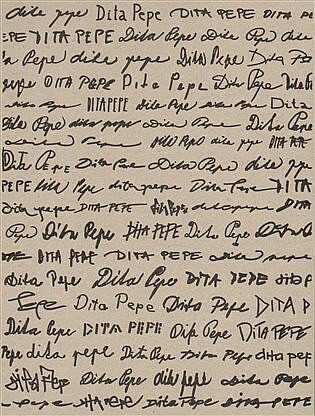 dita pepe Dita Pepe DITA PEPE DITA PE
PE DITA PEPE Dita Pepe Dita Pepe dita
a Pepe dita pepe Dita Pepe Dita Pe
pepe DITA PEPE Dita Pepe Dita Pepe Dita Pe
DITA PEPE dita Pepe Dita
Dita Pepe dita pepe Dita Pepe Dita Pepe
Dita Pepe dita pepe DITA PEPE
DITA PEPE Dita Pepe Dita Pepe dita pepe
PEPE Dita Pepe dita pepe Dita Pepe DITA
dita pepe DITA PEPE DITA PEPE dita pepe DITA
Pepe Dita Pepe DITA PEPE Dita Pepe
DITA PEPE Dita Pepe DITA PEPE dita pepe
Dita Pepe Dita Pepe DITA PEPE DITA P
Pepe Dita Pepe Dita Pepe DITA P
Dita Pepe DITA PEPE Dita Pepe DITA PEPE
Pepe dita pepe Dita Pepe Dita Pepe dita pep
DITA PEPE Dita Pepe dita pepe Dita Pepe
Pepe DITA PEPE Dita Pepe DITA PEPE